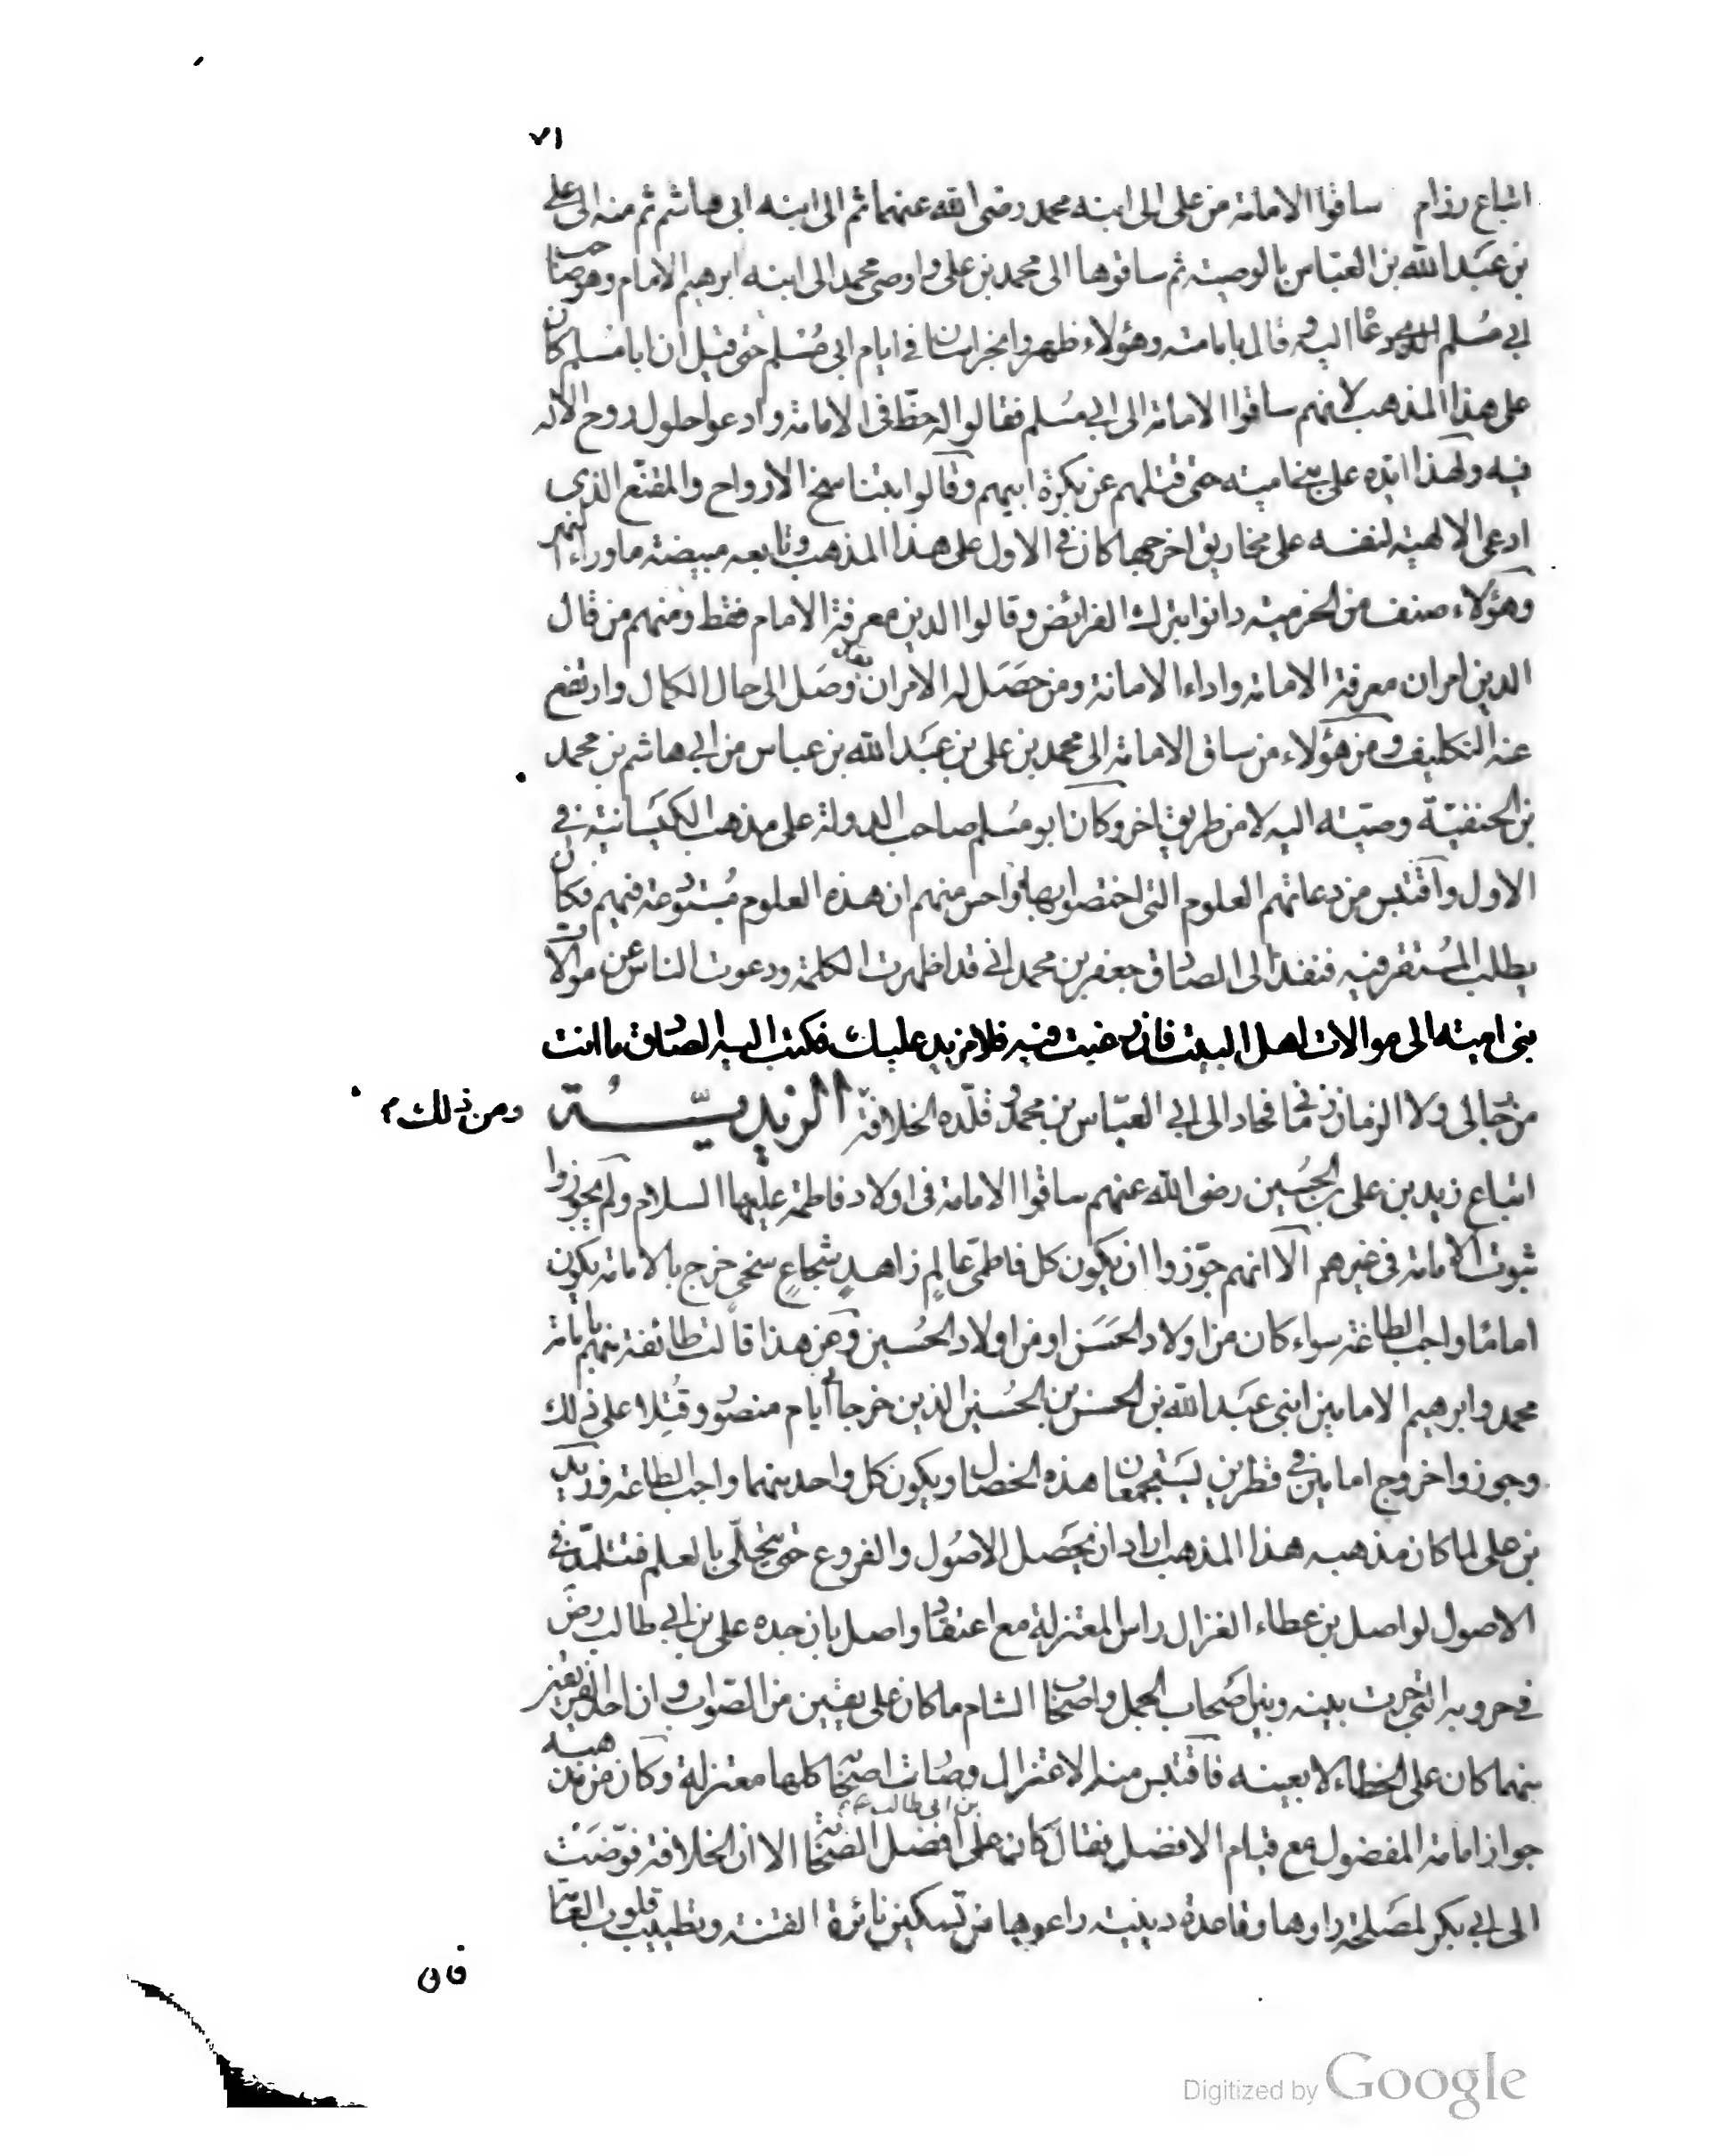 ٧١
اتباع رزام ساقوا الامامة من على الى ابنه محمد رضى الله عنهما ثم الى ابنه ابى هاشم ثم منه الى على
بن عبد الله بن العباس بالوصية ثم ساقوها الى محمد بن على واوصى محمد الى ابنه ابرهيم الامام وهو صاحب
ابى مسلم الذى دعا اليه وقال بامامته وهؤلاء ظهروا بخراسان فى ايام ابى مسلم حتى قيل ان ابا مسلم كان
على هذا المذهب لانهم ساقوا الامامة الى ابى مسلم فقالوا له حظ فى الامامة وادعوا حلول روح الاله
فيه ولهذا ايده على بنى امية حتى قتلهم عن بكرة ابيهم وقالوا بتناسخ الارواح والمقنع الذى
ادعى الالهية لنفسه على مخاريق اخرجها كان فى الاول على هذا المذهب وتابعه مبيضة ما وراء النهر
وهؤلاء صنف من الخرمية دانوا بترك الفرائض وقالوا الدين معرفة الامام فقط ومنهم من قال
الدين امران معرفة الامامة واداء الامانة ومن حصل له الامران وصل الى حال الكمال وارتفع
عنه التكليف ومن هؤلاء من ساق الامامة الى محمد بن على بن عبد الله بن عباس من ابى هاشم بن محمد
بن الحنفية وصية اليه لا من طريق اخر وكان ابو مسلم صاحب الدولة على مذهب الكيسانية فى
الاول واقتبس من دعاتهم العلوم التى اختصوا بها واحس منهم ان هذه العلوم مستودعة فيهم فكان
يطلب المستقر فيه فنفذ الى الصادق جعفر بن محمد انى قد اظهرت الكلمة ودعوت الناس عن موالات
بنى امية الى موالات اهل البيت فان رغبت فيه فلا مزيد عليك فكتب اليه الصادق ما انت
من رجالى ولا الزمان زمانى فحاد الى ابى العباس بن محمد وقلده الخلافة الزيدية
ومن ذلك
اتباع زيد بن على بن الحسين رضى الله عنهم ساقوا الامامة فى اولاد فاطمة عليها السلام ولم يجوزوا
ثبوت الامامة فى غيرهم الا انهم جوزوا ان يكون كل فاطمى عالم زاهد شجاع سخى خرج بالامامة يكون
اماما واجب الطاعة سواء كان من اولاد الحسن او من اولاد الحسين وعن هذا قالت طائفة منهم بامامة
محمد وابرهيم الامامين ابنى عبد الله بن الحسن بن الحسين الذين خرجا فى ايام منصور وقتلا على ذلك
وجوزوا خروج امامين فى قطرين يستجمعان هذه الخصال ويكون كل واحد منهما واجب الطاعة وزيد
بن على لما كان مذهبه هذا المذهب اراد ان يحصل الاصول والفروع حتى يتحلى بالعلم فتلمذ فى
الاصول لواصل بن عطاء الغزال راس المعتزلة مع اعتقاد واصل بان جده على بن ابى طالب رض
فى حروبه التى جرت بينه وبين اصحاب الجمل واصحاب الشام ما كان على يقين من الصواب وان احد الفريقين
منهما كان على الخطاء لا بعينه فاقتبس منه الاعتزال وصارت اصحابه كلها معتزلة وكان من مذهبه
جواز امامة المفضول مع قيام الافضل فقال كان على بن ابى طالب افضل الصحابة الا ان الخلافة فوضت
الى ابى بكر لمصلحة راوها وقاعدة دينية راعوها من تسكين نائرة الفتنة وتطييب قلوب العامة
فان
Digitized by Google